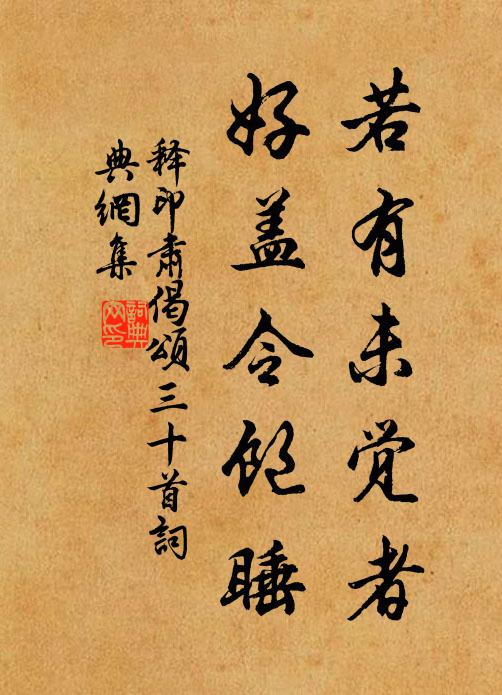 若有未觉者
好盖令饱睡
释印肃偈颂三十首詞
典網集
詞典网印